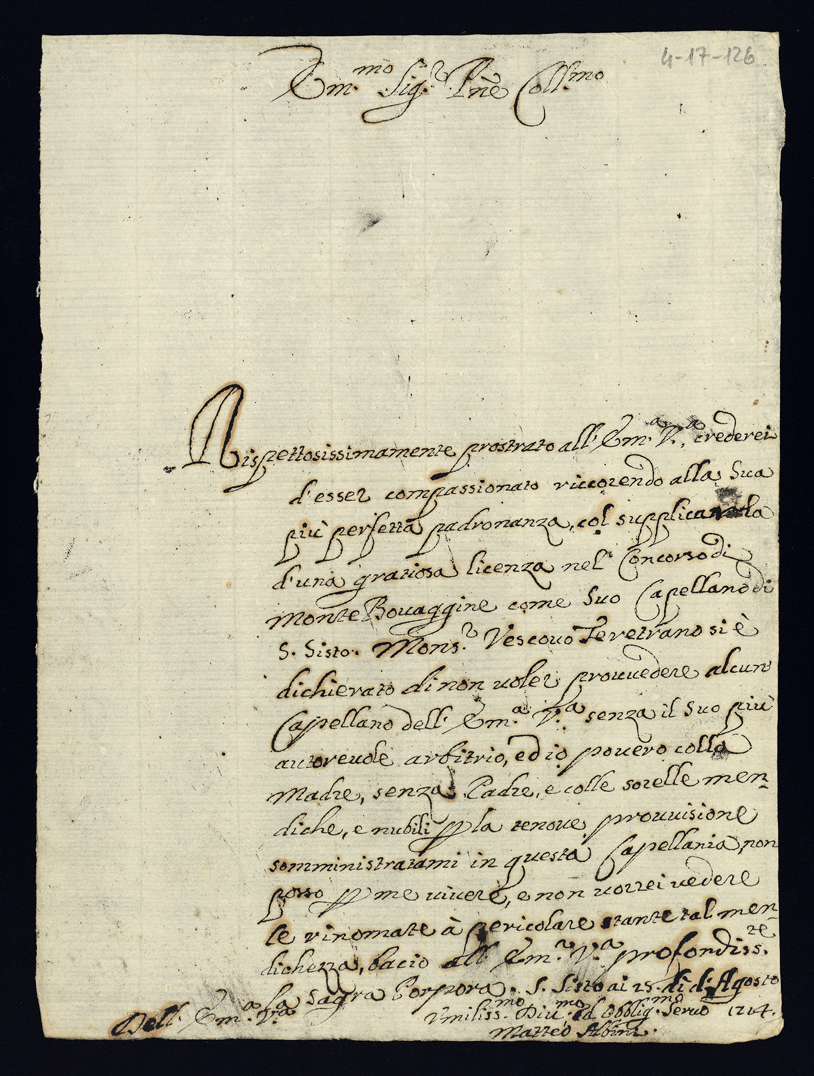 4-17-126
Em.mo Sig.r P͞ne Coll.mo
Rispettosissimamente prostrato all' Em.a V.a, crederei
d'esser compassionato riccorendo alla Sua
più perfetta padronanza, col supplicarla
d'una gratiosa licenza nel' Concorso di
Monte Bouaggine come suo Capellano di
S. Sisto. Mons.r Vescouo Feretrano si è
dichierato di non uoler prouuedere alcun
Capellano dell' Em.a V.a senza il suo più
autoreuole arbitrio, ed io pouero colla
Madre, senza Padre, e colle sorelle men-
diche, e nubili p la tenoue prouuisione
somministratami in questa Capellania, non
posso p me uiuere, e non uorrei uedere
le rinomate à pericolare stante tal men-
dichezza, bacio all' Em.a V.a profondiss.te
la Sagra Porpora. S. Sisto ai di d'Agosto
Dell' Em.a V.a
Vmiliss.mo Diu.mo ed Obblig.mo Seruo 1714.
Matteo Albini.